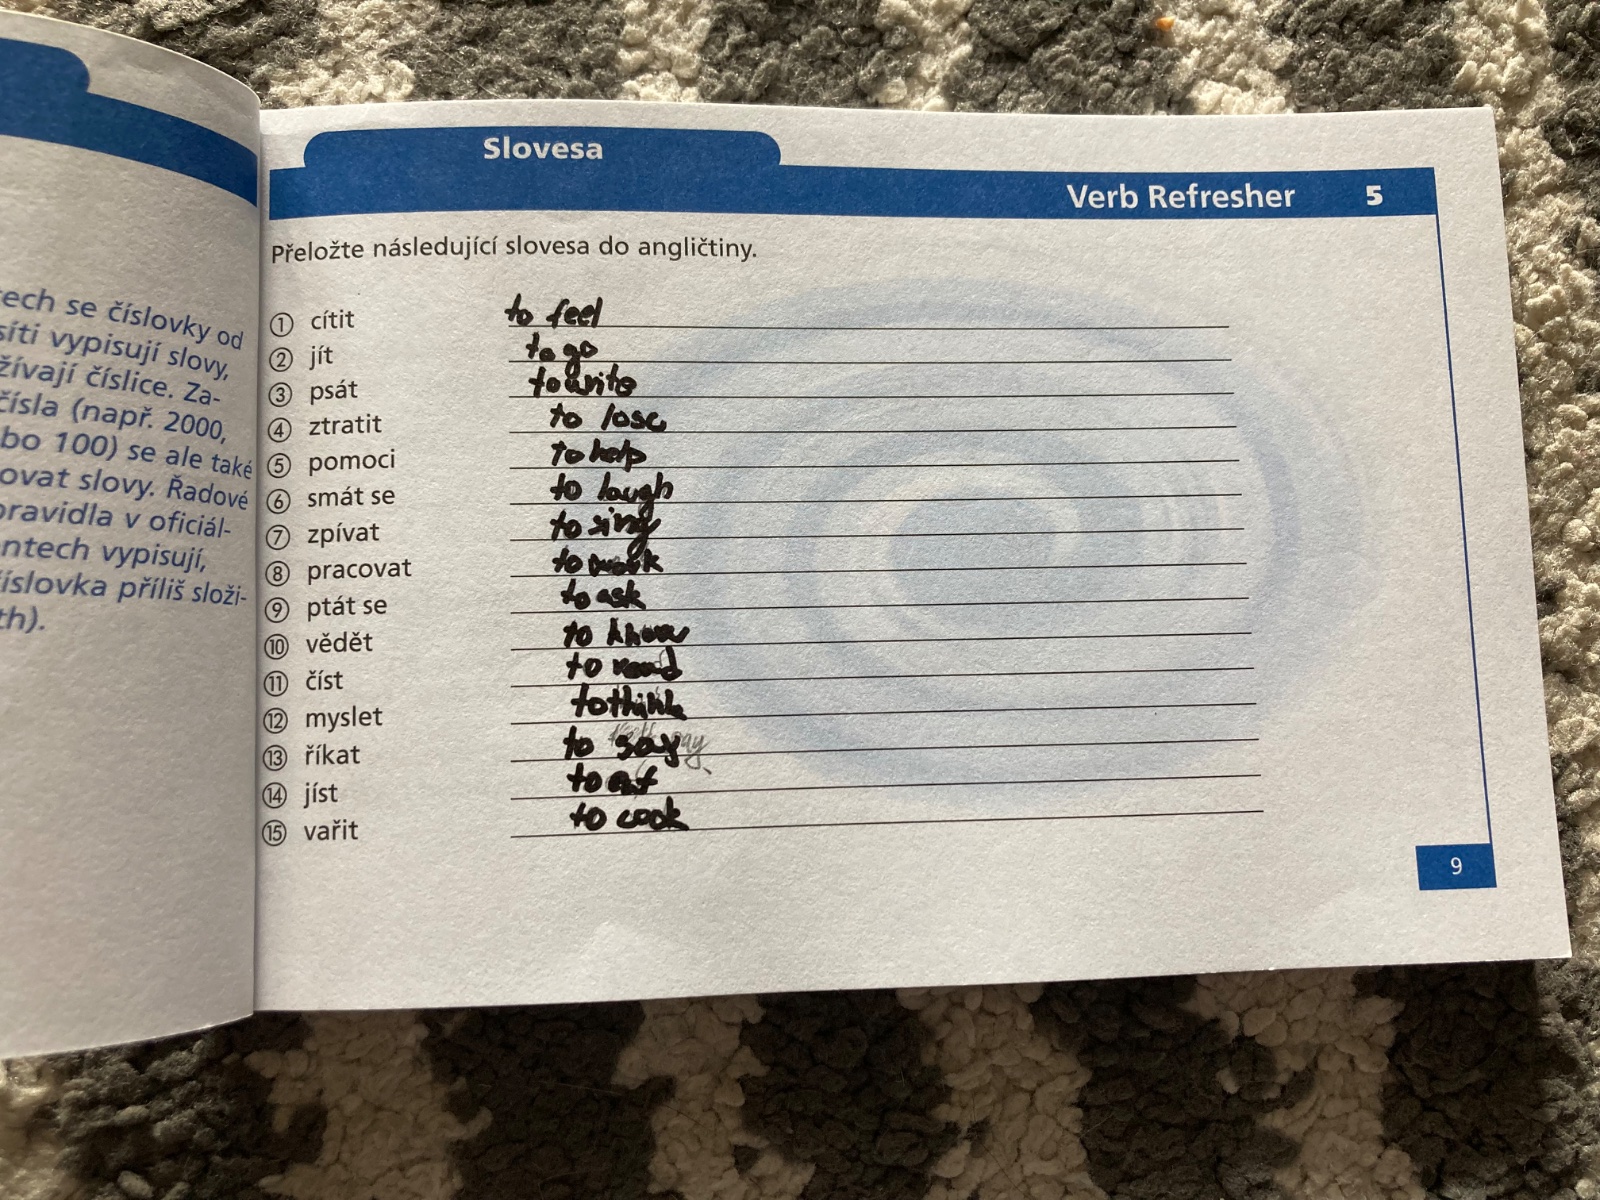 tech se číslovky od
síti vypisují slovy,
žívají číslice. Za-
čísla (např. 2000,
bo 100) se ale také
ovat slovy. Řadové
pravidla v oficiál-
ntech vypisují,
číslovka příliš složi-
th).
Slovesa
Verb Refresher 5
Přeložte následující slovesa do angličtiny.
1 cítit to feel
2 jít to go
3 psát to write
4 ztratit to lose
5 pomoci to help
6 smát se to laugh
7 zpívat to sing
8 pracovat to work
9 ptát se to ask
10 vědět to know
11 číst to read
12 myslet to think
13 říkat to say
14 jíst to eat
15 vařit to cook
9